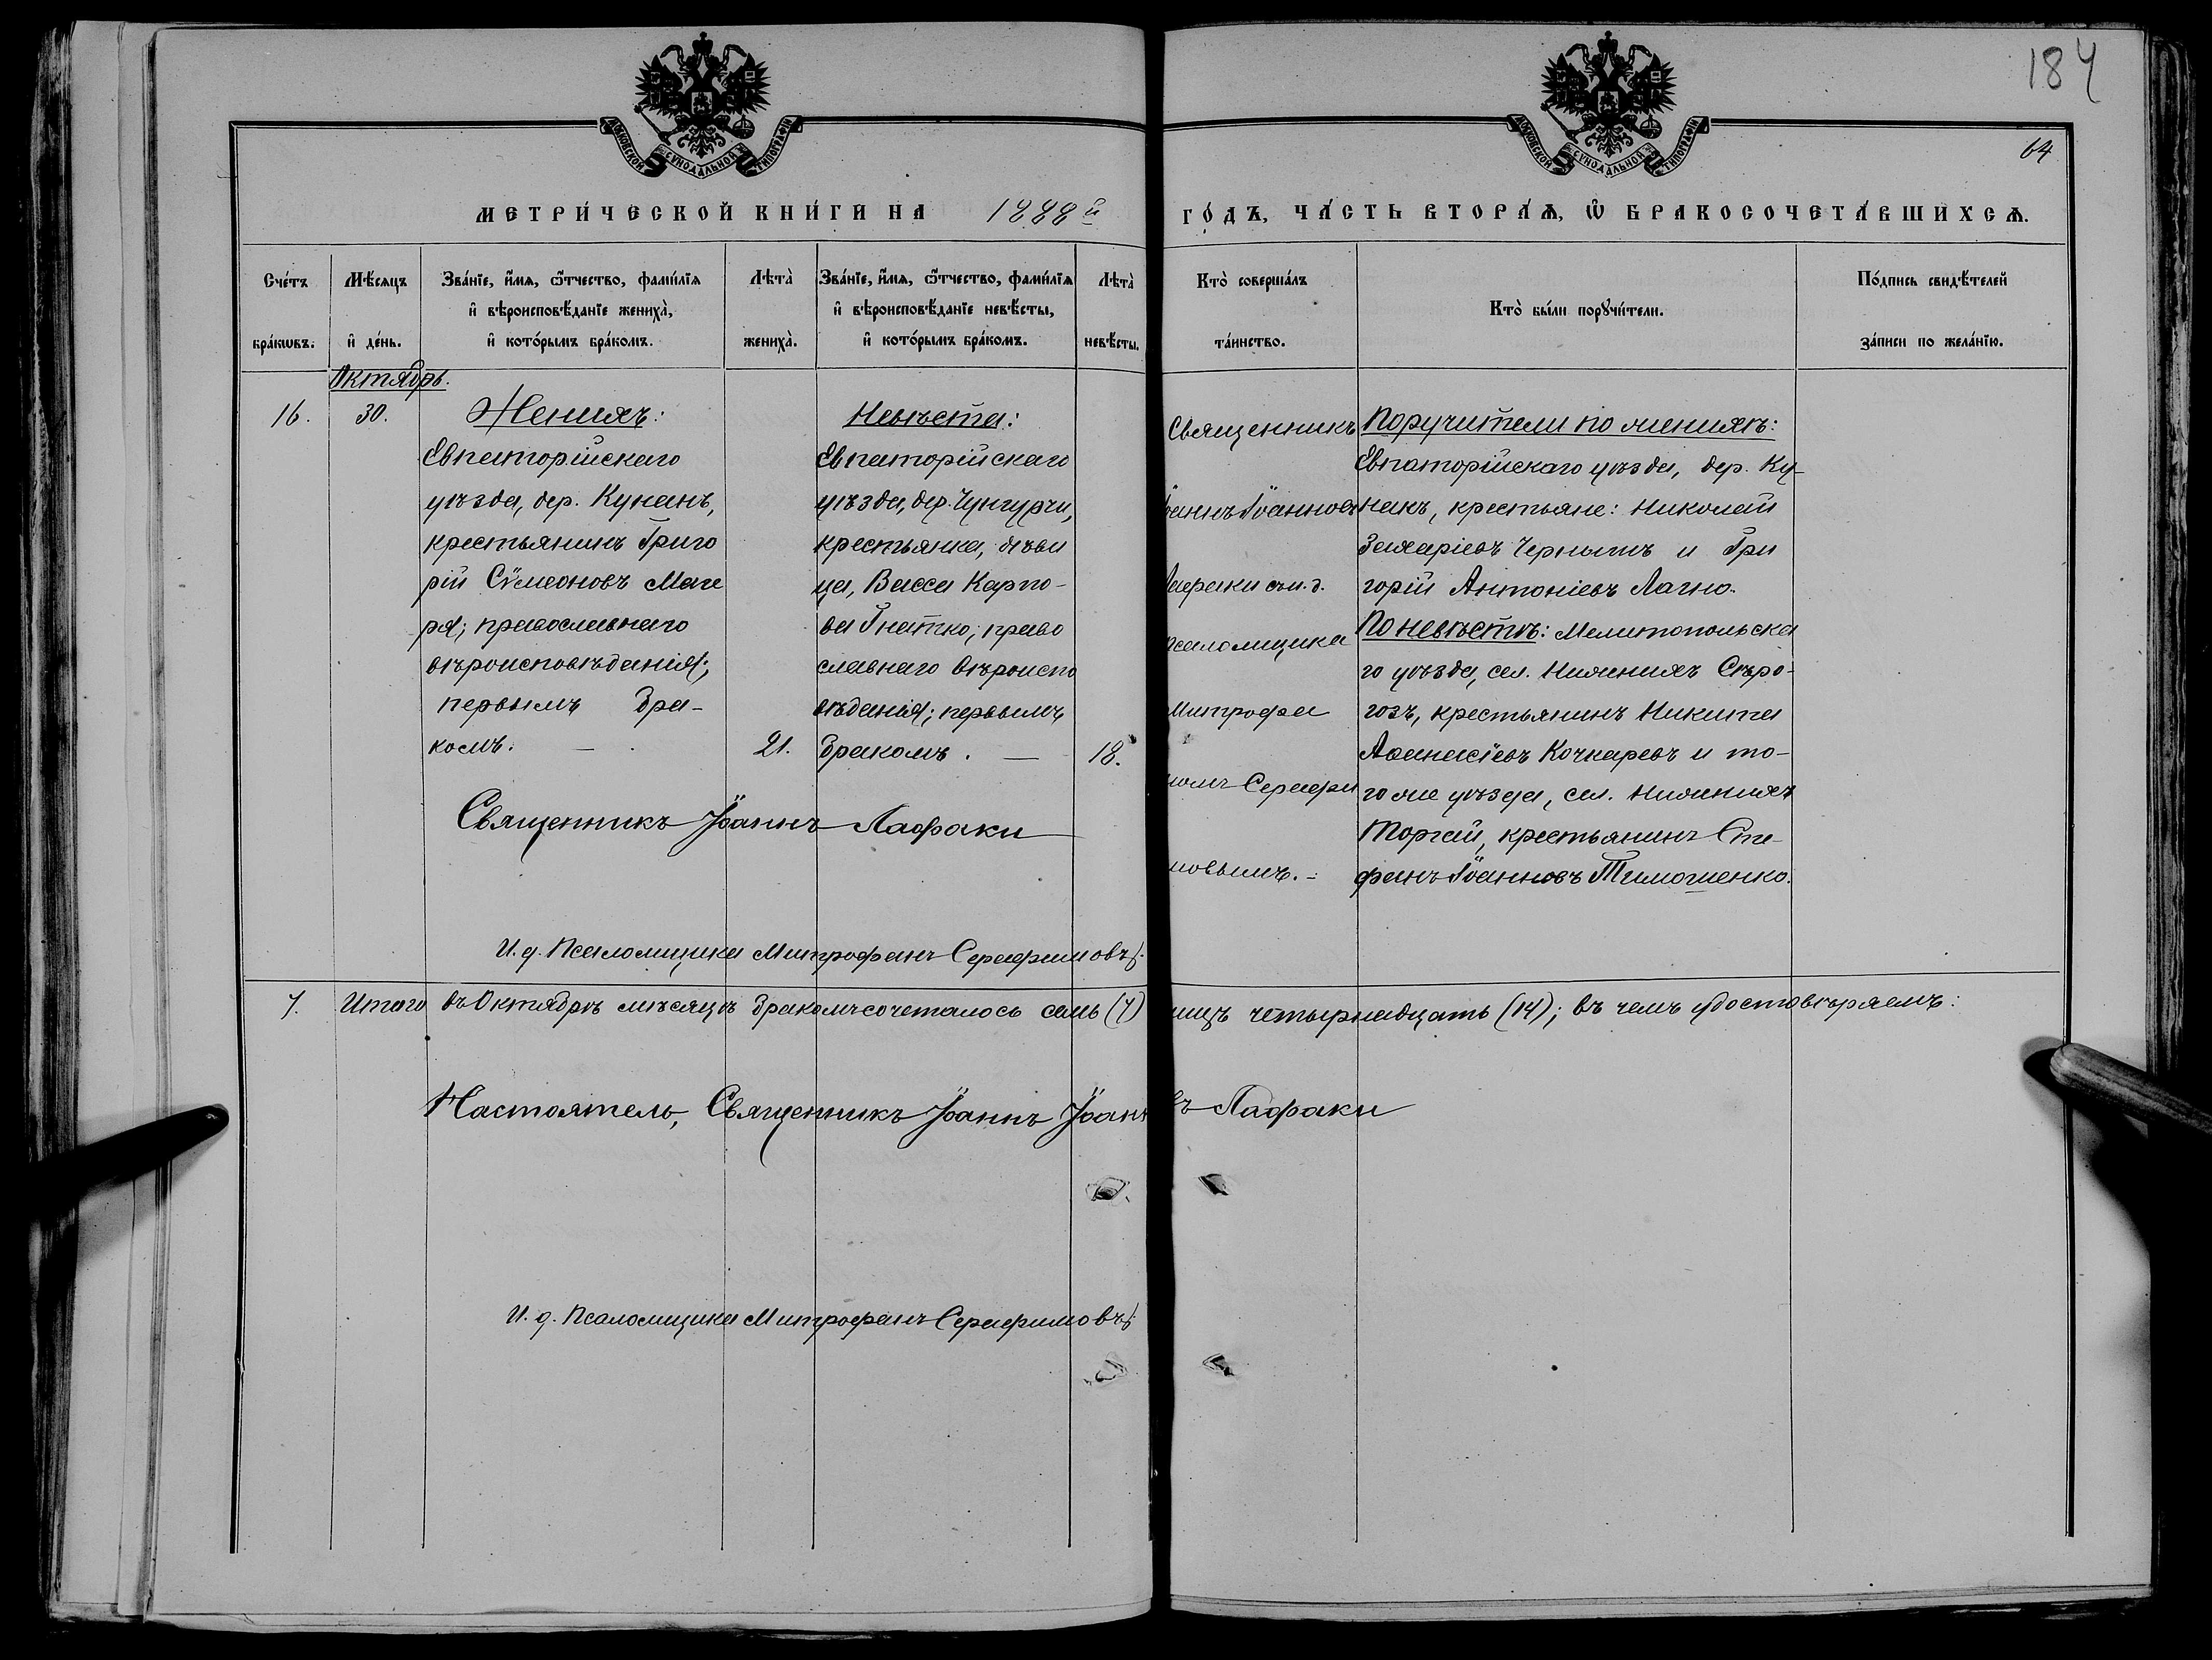 184
64
МОСКОВСКОЙ СУНОДАЛЬНОЙ ТИПОГРАФІИ
МОСКОВСКОЙ СУНОДАЛЬНОЙ ТИПОГРАФІИ
МЕТРИ́ЧЕСКОЙ КНИ́ГИ НА 1888й
ГО́ДЪ, ЧА́СТЬ ВТОРА́Ѧ, Ѽ БРАКОСОЧЕТА́ВШИХСѦ.
Сче́тъ бра́кѡвъ.
Мѣ́сѧцъ и҆ де́нь.
Зва́нїе, и҆́мѧ, ѻ҆́тчество, фами́лїѧ
и҆ вѣроисповѣ́данїе жениха̀,
и҆ кото́рымъ бра́комъ.
Лѣта̀ жениха̀.
Зва́нїе, и҆́мѧ, ѻ҆́тчество, фами́лїѧ
и҆ вѣроисповѣ́данїе невѣ́сты,
и҆ кото́рымъ бра́комъ.
Лѣта̀ невѣ́сты.
Кто̀ соверша́лъ та́инство.
Кто̀ бы́ли порꙋчи́тели.
По́дпись свидѣ́телей за́писи по жела́нїю.
Октябрь.
16.
30.
Женихъ:
Евпаторійскаго
уѣзда, дер. Кунанъ,
крестьянинъ Григо
рій Сѷмеоновъ Маге
ря; православнаго
вѣроисповѣданія;
первымъ бра-
комъ. —
21.
Невѣста:
Евпаторійскаго
уѣзда, дер. Чунгурчи,
крестьянка, дѣви
ца, Васса Карпо-
ва Гнатко; право
славнаго вѣроиспо
вѣданія; первымъ
бракомъ. —
18.
Священникъ
Іоаннъ Іоанновъ
Лафаки съ и. д.
псаломщика
Митрофа
номъ Серафи
мовымъ. -
Поручители по женихѣ:
Евпаторійскаго уѣзда, дер. Ку-
накъ, крестьяне: Николай
Захаріевъ Чернышъ и Гри
горій Антоніевъ Лагно.
По невѣстѣ: Мелитопольска
го уѣзда, сел. Нижнихъ Сѣро-
гозъ, крестьянинъ Никита
Аѳанасіевъ Кочкаревъ и то-
го же уѣзда, сел. Нижнихъ
Торгай, крестьянинъ Сте-
фанъ Іоанновъ Тимошенко.
Священникъ Іоаннъ Лафаки
И. д. Псаломщика Митрофанъ Серафимовъ.
7. Итого въ Октябрѣ мѣсяцѣ бракомъ сочеталось семь (7)
лицъ четырнадцать (14); въ чемъ удостовѣряемъ:
Настоятель, Священникъ Іоаннъ Іоанновъ Лафаки
И. д. Псаломщика Митрофанъ Серафимовъ.